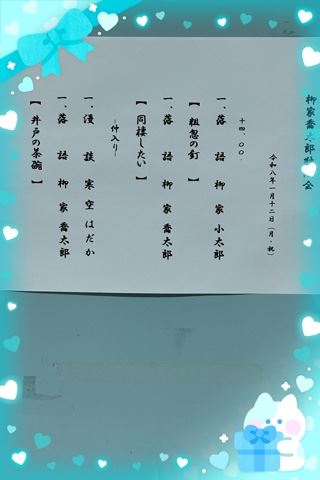 柳家喬太郎
会
令和八年一月十二日(月・祝)
十四.〇〇.
一、落語 柳家 小太郎
【 粗忽の釘 】
一、落語 柳家 喬太郎
【 同棲したい 】
―仲入り―
一、漫談 寒空 はだか
一、落語 柳家 喬太郎
【 井戸の茶碗 】